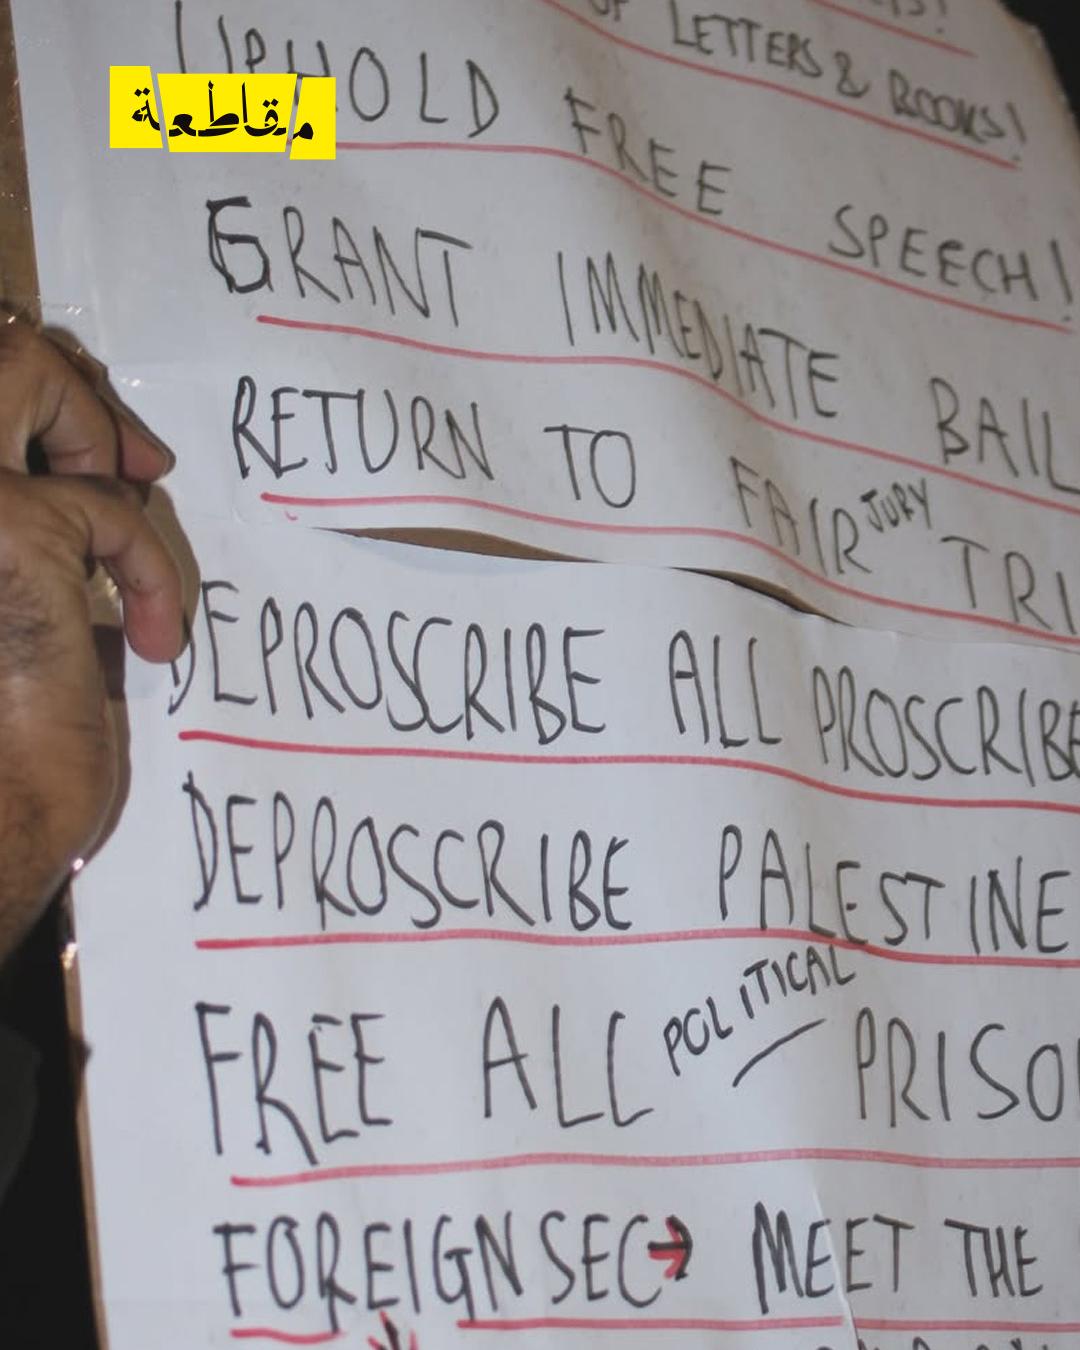 OF LETTERS & BOOKS!
UPHOLD FREE SPEECH!
مقاطعة
GRANT IMMEDIATE BAIL
RETURN TO FAIR JURY TRI
DEPROSCRIBE ALL PROSCRIBE
DEPROSCRIBE PALESTINE
FREE ALL POLITICAL PRISO
FOREIGN SEC → MEET THE